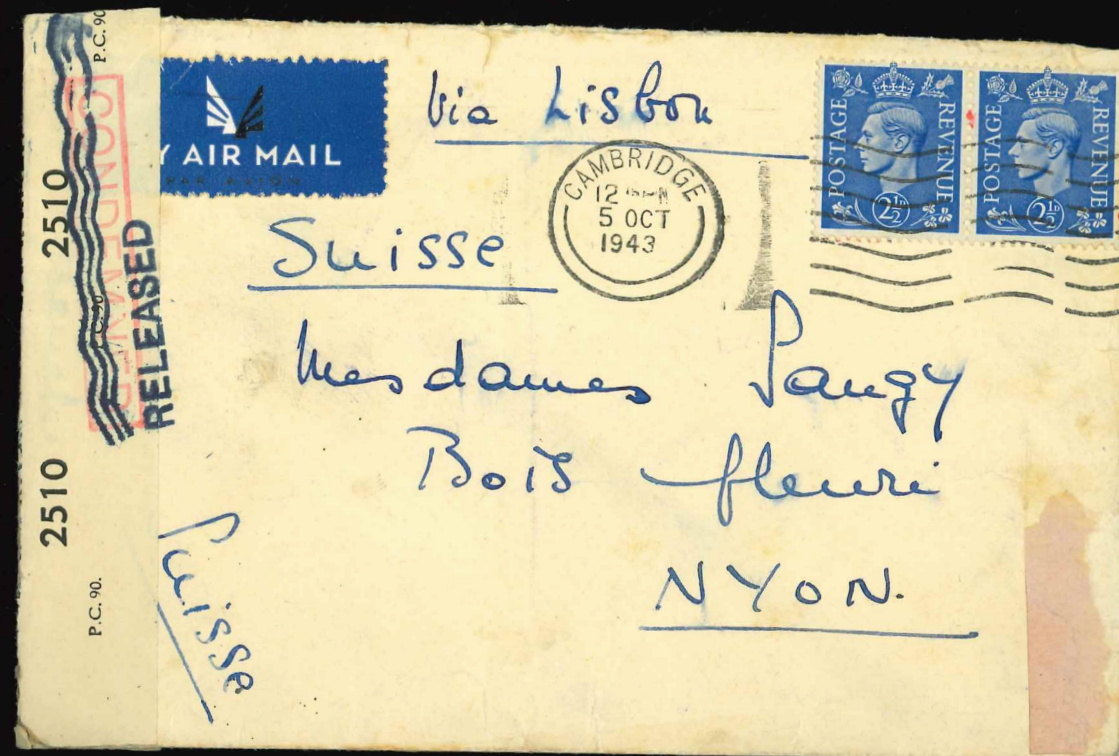 P.C. 90
CONDEMNED
2510
RELEASED
2510
P.C. 90.
Y AIR MAIL
PAR AVION
Via Lisbon
CAMBRIDGE
12
5 OCT
1943
POSTAGE REVENUE
2½D
POSTAGE REVENUE
2½D
Suisse
Mesdames Sangy
Bois fleuri
NYON.
Suisse